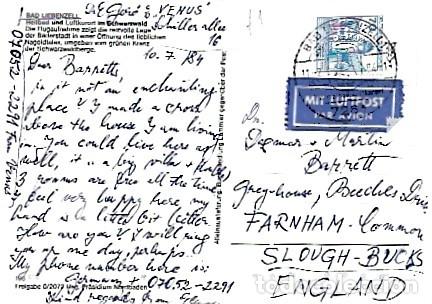 "VENUS"
BAD LIEBENZELL
Heilbad und Luftkurort im Schwarzwald
Die Flugaufnahme zeigt die reizvolle Lage
der Bäderstadt in einer Öffnung des lieblichen
Nagoldtales, umgeben vom grünen Kranz
der Schwarzwaldberge.
Schiller allee
16
10.7.84
Dear Barretts,
is it not an enchanting
place I made a cross
above the house I am living
in. You could live here as
well, it is a big villa + Hotel
3 rooms are free all the time
I feel very happy here, my
hand is a little bit better.
How are you? I will ring
you up one day, perhaps.
My phone number here is:
Germany 07052-2291
Kind regards from
07052-2291
Freigabe 0/2077 Präsidium
MIT LUFTPOST
PAR AVION
Dr.
Dagmar + Martin
Barrett
Grey-house, Beeches Drive
FARNHAM-Common
SLOUGH-BUCKS
ENGLAND
todocoleccion